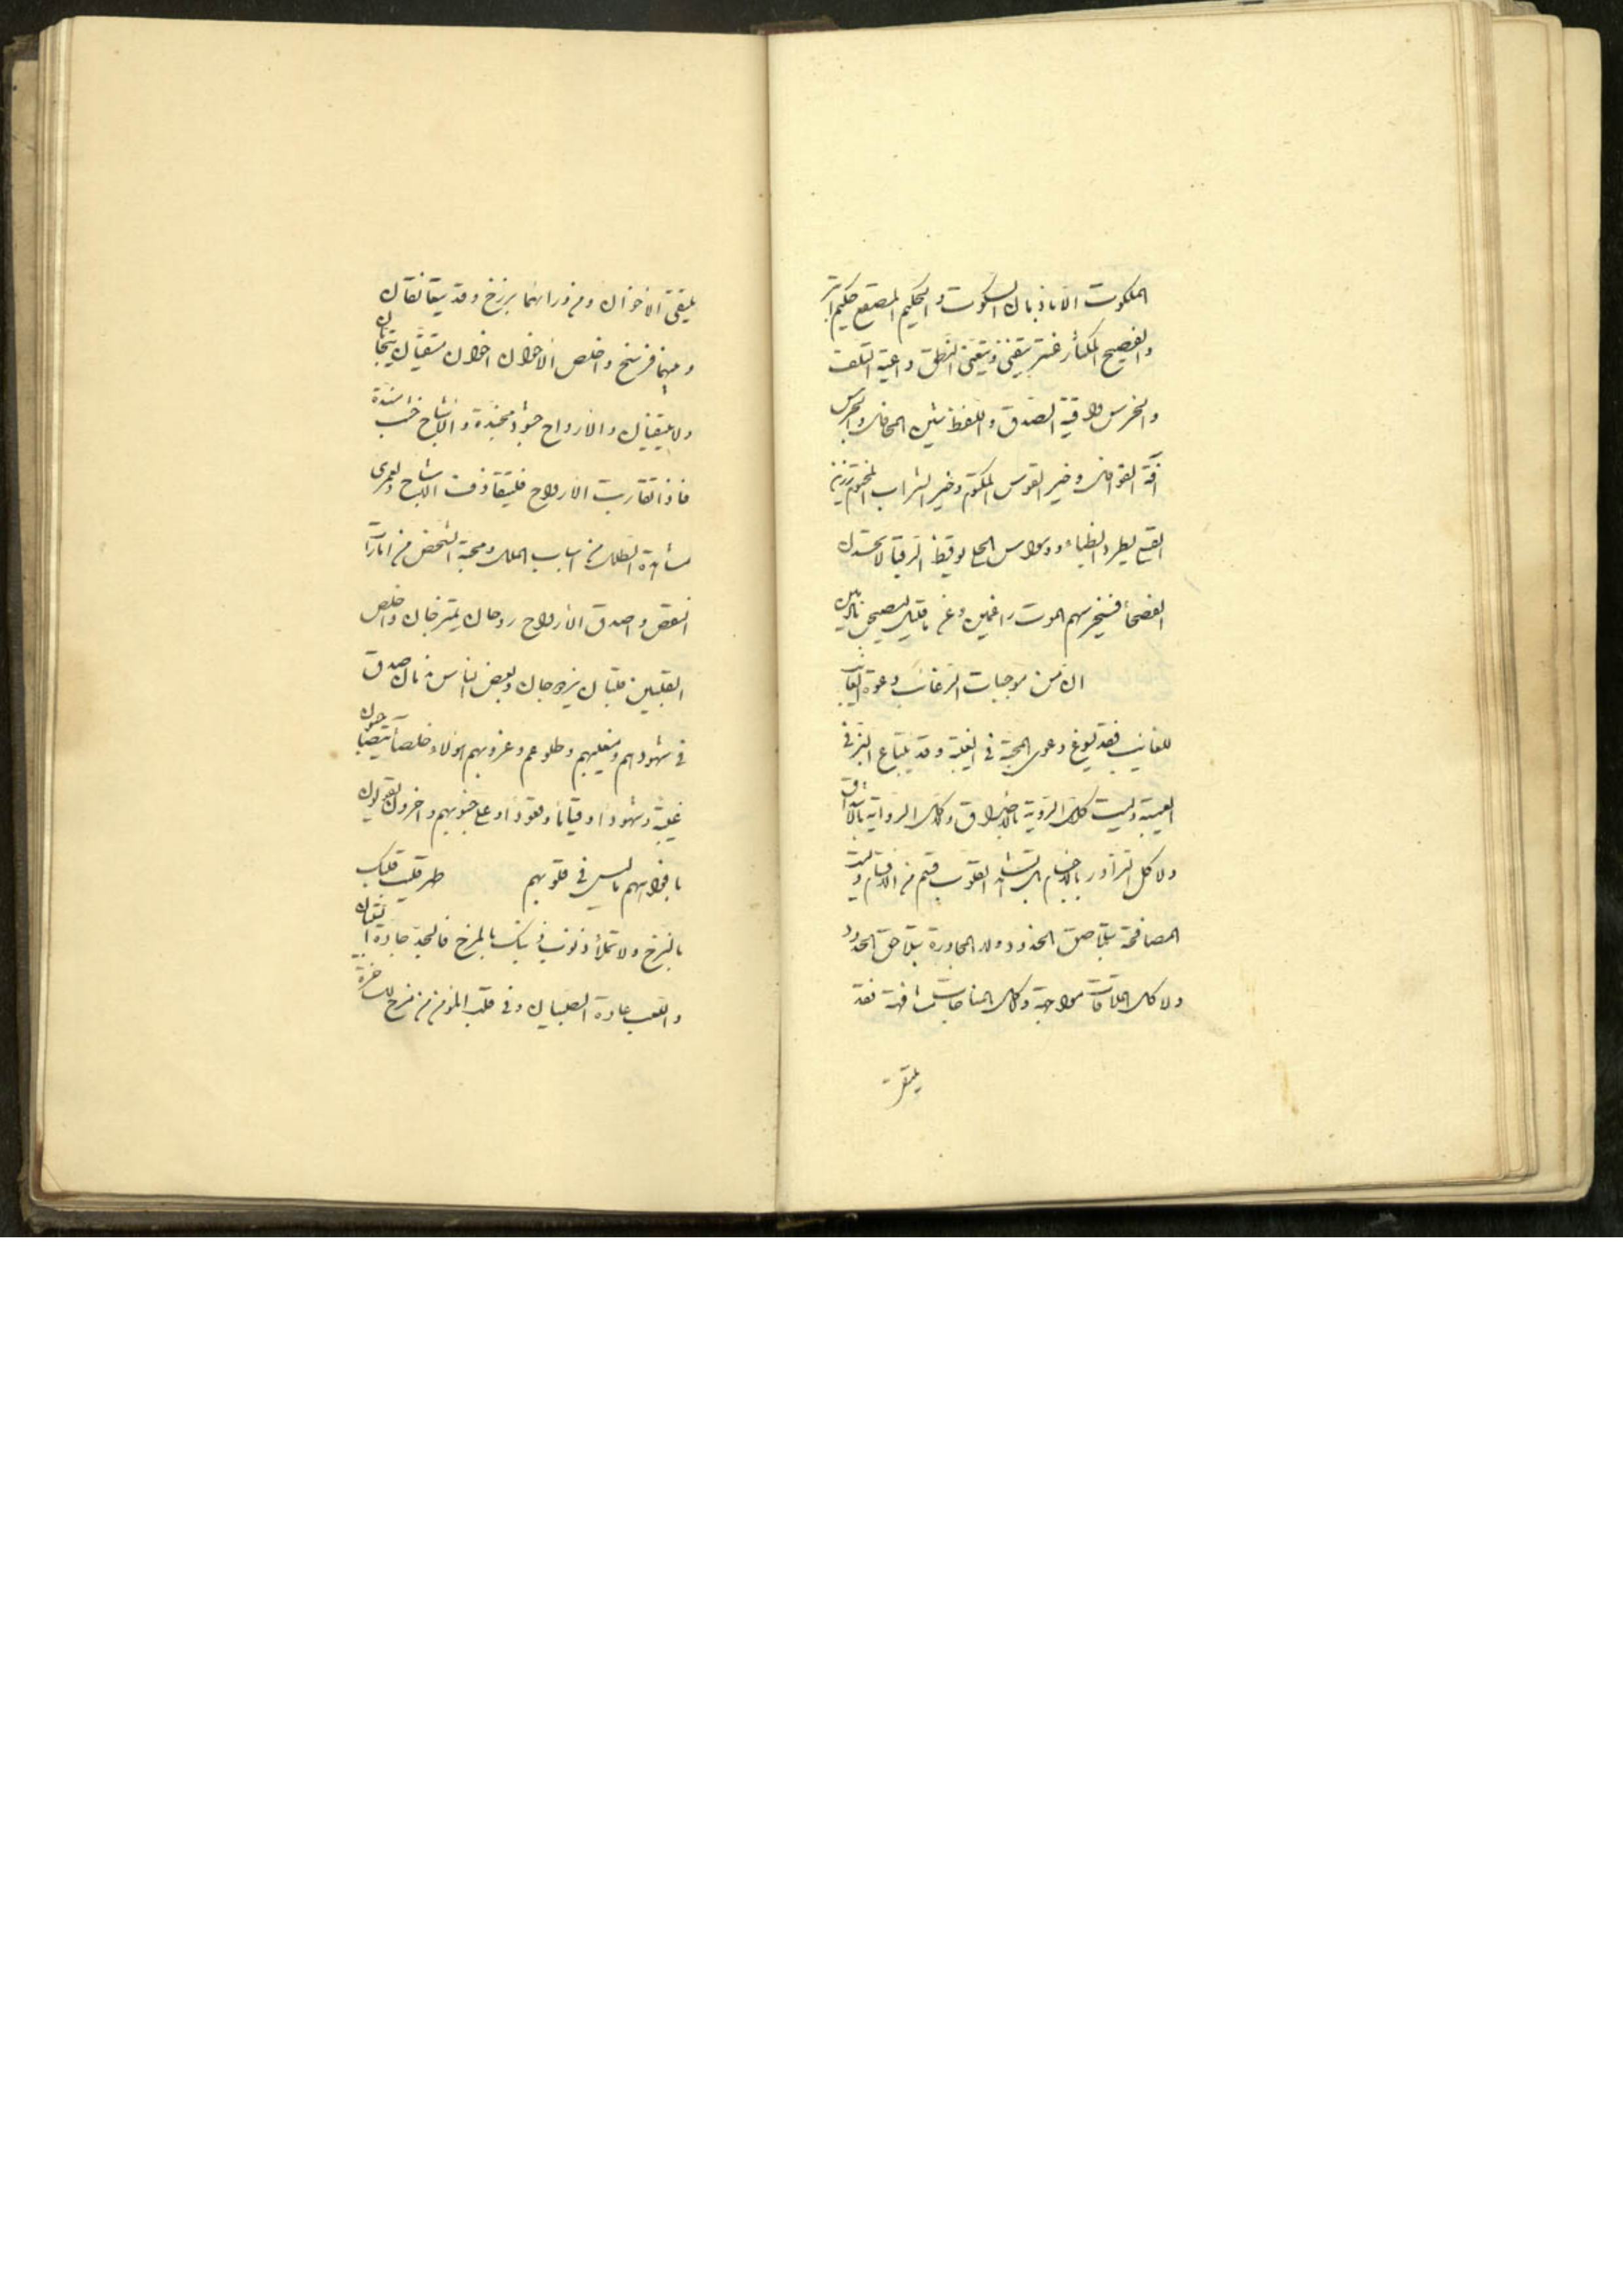 الملكوت الا باذبال السكوت والحكيم المصقع حكيم ابتر
والفصيح المكثار عنتر يتغنى ويتغنى النطق داعية التلف
والخرس واقية الصدق واللفظ يشين المحافل والجرس
آفة القوافل وخير القوس المكتوم وخير الشراب المختوم
يطرد الظباء ووسواس الحلى يوقظ الرقباء لا تحسدن
الفصحاء فسيخرسهم الموت راغمين وعن ما قليل ليصبحن نادمين
ان من موجبات الرغائب دعوة الغائب
للغائب فقد يسوغ دعوى المحبة في الغيبة وقد يبتاع البز في
العيبة وليست كل الروية بالاحداق وكل الرواية بالاشداق
ولا كل التزاور بالاجسام بل تشاهد القلوب قسم من الاقسام وليست
المصافحة بتلاصق الخدود ولا المجاورة بتلاحق الحدود
ولا كل الملاقات مواجهة وكل المناجات مشافهة فقد
يلتقى
يلتقى الاخوان ومن ورائهما برزخ وقد يتعانقان
وبينهما فرسخ واخلص الاخوان اخوان يتحابان
ولا يلتقيان والارواح جنود مجندة والاشباح خشب مسندة
فاذا تقاربت الارواح فليتقاذفت الاشباح ولعمرى
مشاهدة الطلل من اسباب الملل ومحبة الشخص من امارات
النقص واصدق الارواح روحان يمتزجان واخلص
القلبين قلبان يزدوجان وبعض الناس
في شهودهم ومغيبهم وطلوعهم وغروبهم اولاء خلصاء يتصاحبون
غيبة وشهودا وقياما وقعودا وعلى جنوبهم واخرون يقولون
بافواههم ما ليس في قلوبهم طهر قلبك
ولا تملأ ذنوب بالمزح فالجد جادة
واللعب عادة الصبيان وفي قلب المؤمن من مزح